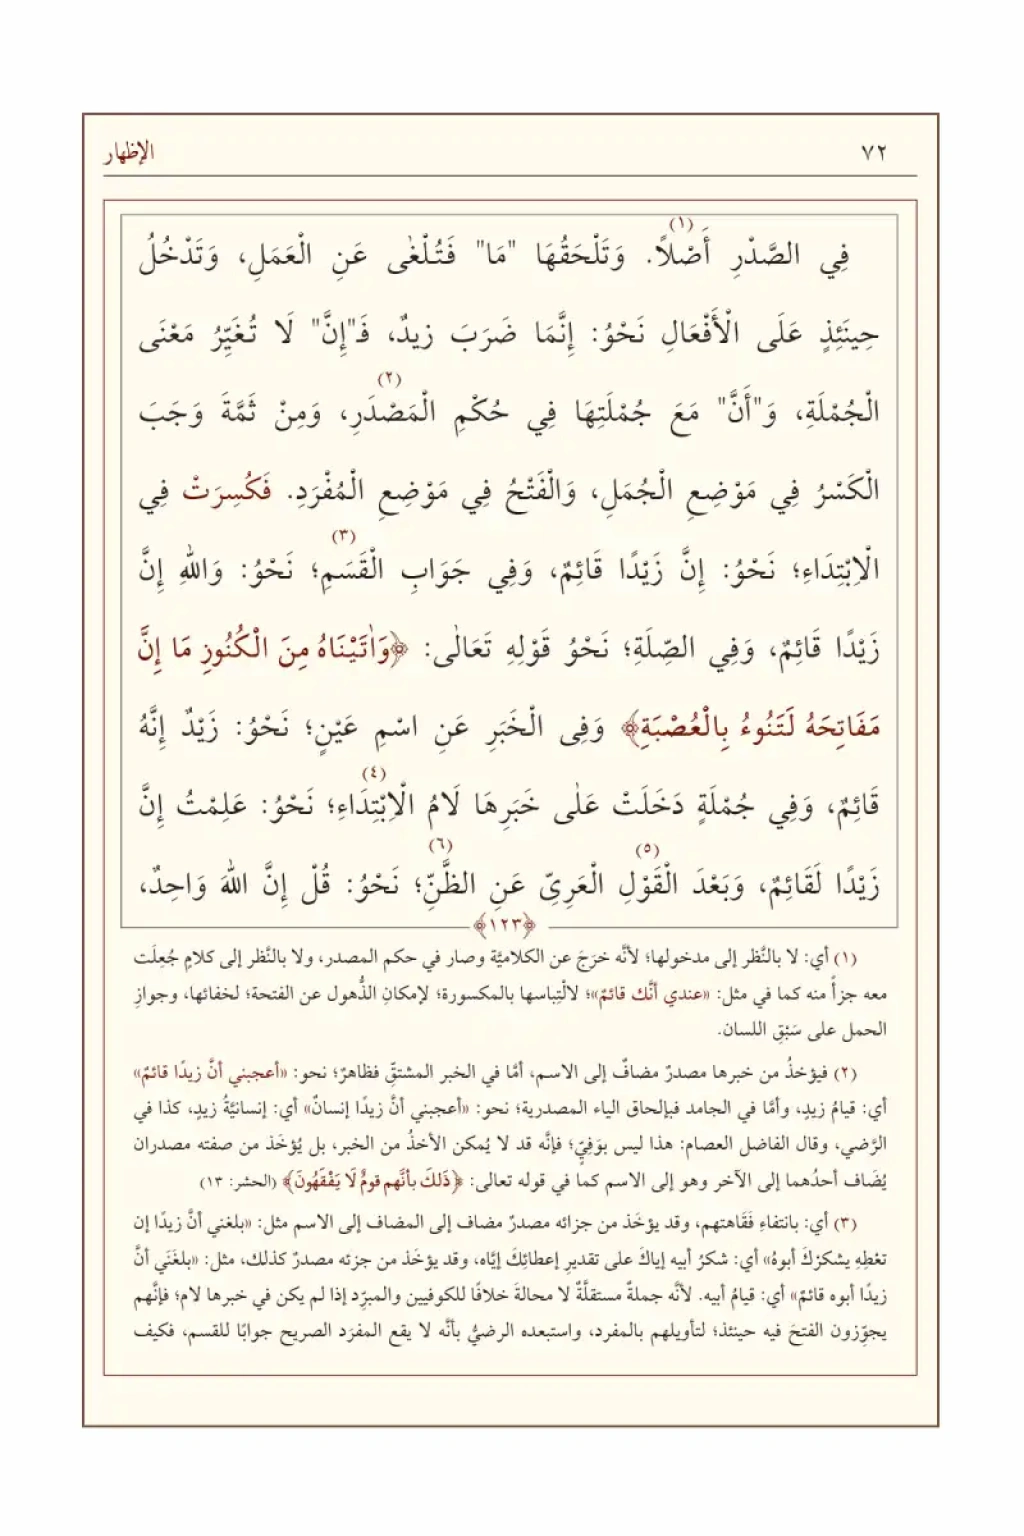 ٧٢ الإظهار
فِي الصَّدْرِ أَصْلاً(١). وَتَلْحَقُهَا "مَا" فَتُلْغٰى عَنِ الْعَمَلِ، وَتَدْخُلُ
حِينَئِذٍ عَلَى الْأَفْعَالِ نَحْوُ: إِنَّمَا ضَرَبَ زيدٌ، فَـ"إِنَّ" لَا تُغَيِّرُ مَعْنَى
الْجُمْلَةِ، وَ"أَنَّ" مَعَ جُمْلَتِهَا فِي حُكْمِ الْمَصْدَرِ(٢)، وَمِنْ ثَمَّةَ وَجَبَ
الْكَسْرُ فِي مَوْضِعِ الْجُمَلِ، وَالْفَتْحُ فِي مَوْضِعِ الْمُفْرَدِ. فَكُسِرَتْ فِي
الْاِبْتِدَاءِ؛ نَحْوُ: إِنَّ زَيْدًا قَائِمٌ، وَفِي جَوَابِ الْقَسَمِ(٣)؛ نَحْوُ: وَاللهِ إِنَّ
زَيْدًا قَائِمٌ، وَفِي الصِّلَةِ؛ نَحْوُ قَوْلِهِ تَعَالٰى: ﴿وَاٰتَيْنَاهُ مِنَ الْكُنُوزِ مَا إِنَّ
مَفَاتِحَهُ لَتَنُوءُ بِالْعُصْبَةِ﴾ وَفِى الْخَبَرِ عَنِ اسْمِ عَيْنٍ؛ نَحْوُ: زَيْدٌ إِنَّهُ
قَائِمٌ، وَفِي جُمْلَةٍ دَخَلَتْ عَلٰى خَبَرِهَا لَامُ الْاِبْتِدَاءِ(٤)؛ نَحْوُ: عَلِمْتُ إِنَّ
زَيْدًا لَقَائِمٌ، وَبَعْدَ الْقَوْلِ(٥) الْعَرِىِّ عَنِ الظَّنِّ(٦)؛ نَحْوُ: قُلْ إِنَّ اللهَ وَاحِدٌ،
﴿١٢٣﴾
(١) أي: لا بالنَّظر إلى مدخولها؛ لأنَّه خرَجَ عن الكلاميَّة وصار في حكم المصدر، ولا بالنَّظر إلى كلامٍ جُعِلَت
معه جزأً منه كما في مثل: «عندي أنَّك قائمٌ»؛ لالْتِباسها بالمكسورة؛ لإمكانِ الذُّهول عن الفتحة؛ لخفائها، وجوازِ
الحمل على سَبْقِ اللسان.
(٢) فيؤخذُ من خبرها مصدرٌ مضافٌ إلى الاسم، أمَّا في الخبر المشتقِّ فظاهرٌ؛ نحو: «أعجبني أنَّ زيدًا قائمٌ»
أي: قيامُ زيدٍ، وأمَّا في الجامد فبإلحاق الياء المصدرية؛ نحو: «أعجبني أنَّ زيدًا إنسانٌ» أي: إنسانيَّةُ زيدٍ، كذا في
الرَّضي، وقال الفاضل العصام: هذا ليس بوَفِيٍّ؛ فإنَّه قد لا يُمكن الأخذُ من الخبر، بل يُؤخَذ من صفته مصدران
يُضَاف أحدُهما إلى الآخر وهو إلى الاسم كما في قوله تعالى: ﴿ذَلكَ بأنَّهم قومٌ لَا يَفْقَهُونَ﴾ (الحشر: ١٣)
(٣) أي: بانتفاءِ فَقَاهتهم، وقد يؤخَذ من جزائه مصدرٌ مضاف إلى المضاف إلى الاسم مثل: «بلغني أنَّ زيدًا إن
تعْطِهِ يشكرْكَ أبوهُ» أي: شكرُ أبيه إياكَ على تقديرِ إعطائِكَ إيَّاه، وقد يؤخَذ من جزئه مصدرٌ كذلك، مثل: «بلغَنَي أنَّ
زيدًا أبوه قائمٌ» أي: قيامُ أبيه. لأنَّه جملةٌ مستقلَّةٌ لا محالةَ خلافًا للكوفيين والمبرّد إذا لم يكن في خبرها لام؛ فإنَّهم
يجوِّزون الفتحَ فيه حينئذ؛ لتأويلهم بالمفرد، واستبعده الرضيُّ بأنَّه لا يقع المفرَد الصريح جوابًا للقسم، فكيف